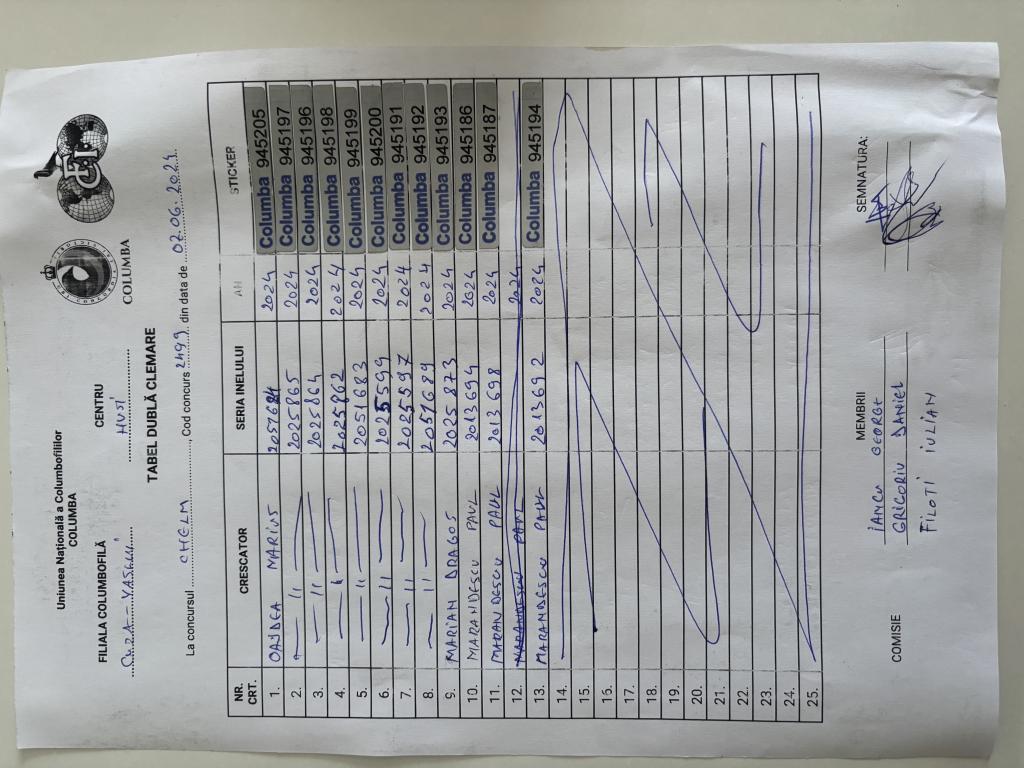 Uniunea Națională a Columbofililor
COLUMBA
COLUMBA
FILIALA COLUMBOFILĂ CENTRU
CUZA-VASLUI HUSI
TABEL DUBLĂ CLEMARE
La concursul CHELM Cod concurs 2499 din data de 02.06.2024
NR. CRT. CRESCATOR SERIA INELULUI AN STICKER
1. OANDEA MARIUS 2024 Columba 945205
2. — 11 — 2025865 2024 Columba 945197
3. — 11 — 2025864 2024 Columba 945196
4. — 11 — 2025862 2024 Columba 945198
5. — 11 — 2051683 2024 Columba 945199
6. — 11 — 2025599 2024 Columba 945200
7. — 11 — 2025597 2024 Columba 945191
8. — 11 — 2051689 2024 Columba 945192
9. MARIAN DRAGOS 2025873 2024 Columba 945193
10. MARANDESCU PAUL 2013694 2024 Columba 945186
11. MARANDESCU PAUL 2013698 2024 Columba 945187
12. MARANDESCU PAUL 2024
13. MARANDESCU PAUL 2013692 2024 Columba 945194
14.
15.
16.
17.
18.
19.
20.
21.
22.
23.
24.
25.
COMISIE MEMBRII SEMNATURA:
IANCU GEORGE
GRIGORIU DANIEL
FILOTI IULIAN